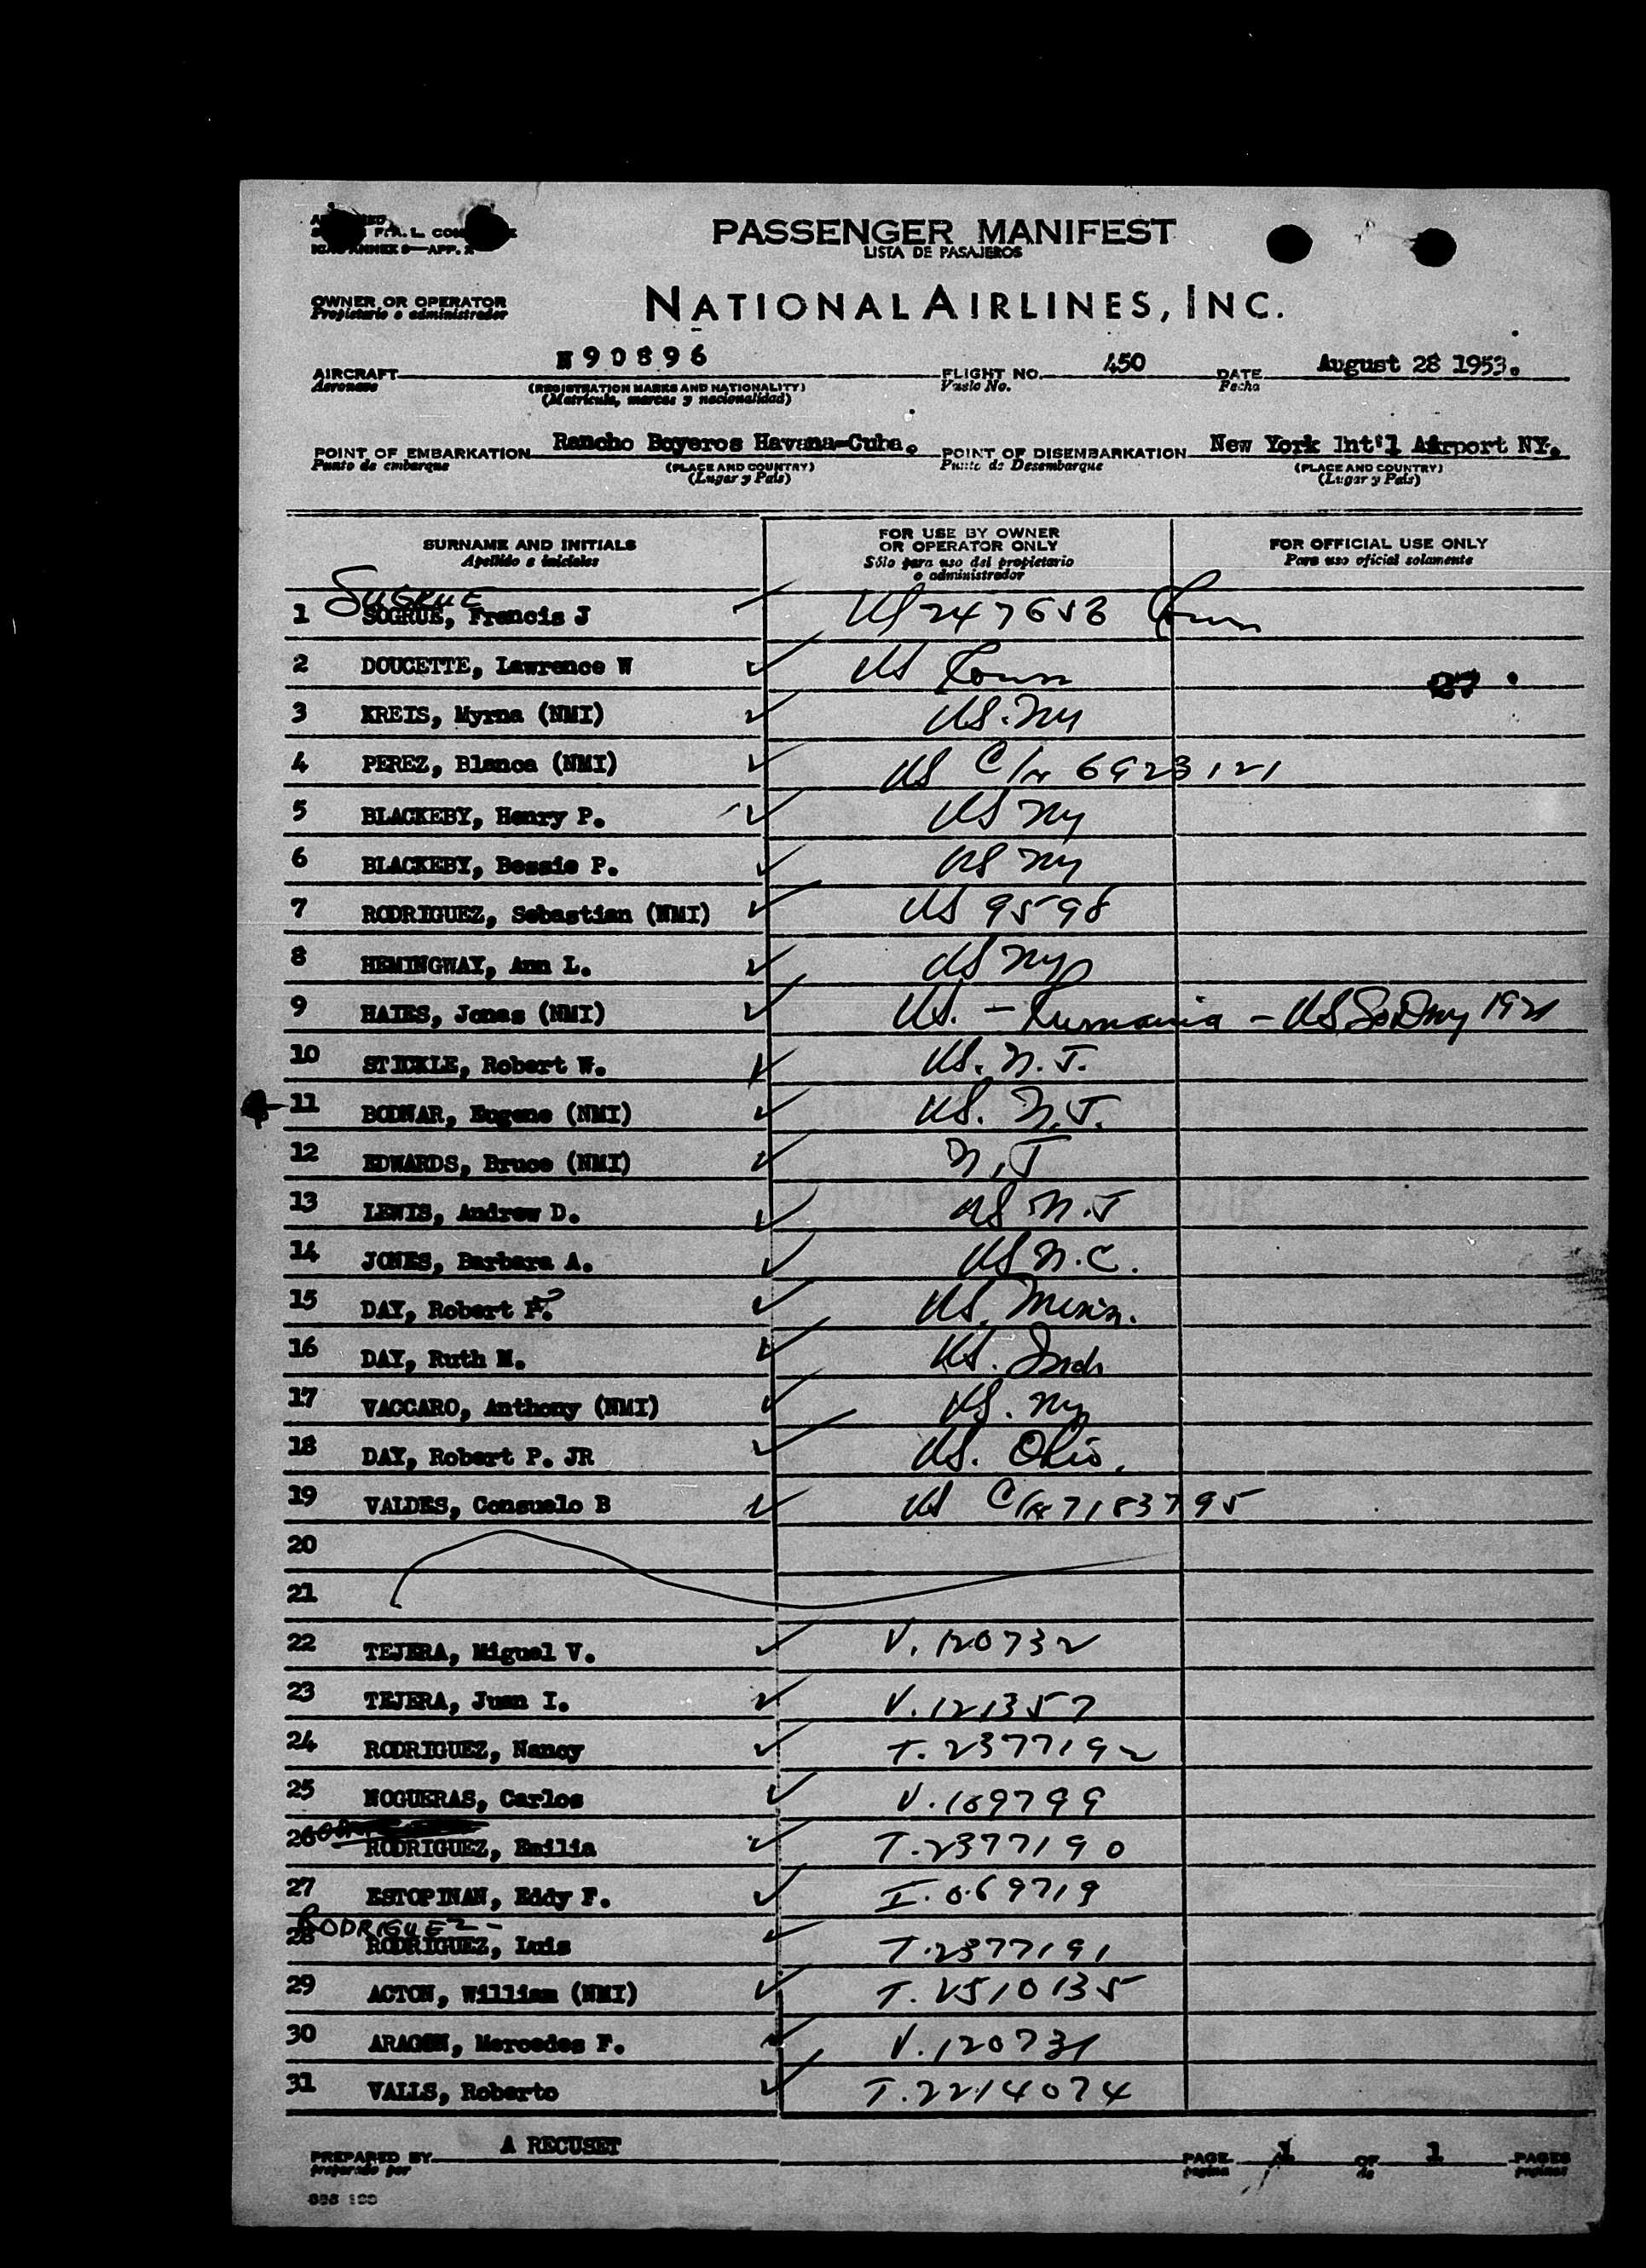 PASSENGER MANIFEST
LISTA DE PASAJEROS
F.A.L. 
ANNEX 9—APP.
OWNER OR OPERATOR
Propietario o administrador
NATIONAL AIRLINES, INC.
AIRCRAFT N90896 FLIGHT NO. 450 DATE August 28 1953.
Aeronave (REGISTRATION MARKS AND NATIONALITY) Vuelo No. Fecha
(Matricula, marcas y nacionalidad)
POINT OF EMBARKATION Rancho Boyeros Havana-Cuba. POINT OF DISEMBARKATION New York Int'l Airport NY.
Punto de embarque (PLACE AND COUNTRY) Punto de Desembarque (PLACE AND COUNTRY)
(Lugar y País) (Lugar y País)
SURNAME AND INITIALS FOR USE BY OWNER OR OPERATOR ONLY FOR OFFICIAL USE ONLY
Apellido e iniciales Sólo para uso del propietario o administrador Para uso oficial solamente
SUGRUE
1 SOGRUE, Francis J US 247653 Conn
2 DOUCETTE, Lawrence W US Conn
3 KREIS, Myrna (NMI) US. NY
4 PEREZ, Blanca (NMI) US C/N 6923121
5 BLACKEBY, Henry P. US NY
6 BLACKEBY, Bessie P. US NY
7 RODRIGUEZ, Sebastian (NMI) US 9598
8 HEMINGWAY, Ann L. US NY
9 HAIES, Jonas (NMI) US. - Rumania - US So D NY 1921
10 STICKLE, Robert W. US. N.J.
11 BODNAR, Eugene (NMI) US. N.J.
12 EDWARDS, Bruce (NMI) N.J
13 LEWIS, Andrew D. US N.J
14 JONES, Barbara A. US N.C.
15 DAY, Robert P. US. Minn.
16 DAY, Ruth M. US. Ind.
17 VACCARO, Anthony (NMI) US. NY
18 DAY, Robert P. JR US. Ohio.
19 VALDES, Consuelo B US C/N 7183795
20
21
22 TEJERA, Miguel V. V. 120732
23 TEJERA, Juan I. V. 121357
24 RODRIGUEZ, Nancy T. 2377192
25 NOGUERAS, Carlos V. 169799
26 RODRIGUEZ, Emilia T. 2377190
27 ESTOPINAN, Eddy F. I. 069719
RODRIGUEZ-
28 RODRIGUEZ, Luis T. 2377191
29 ACTON, William (NMI) T. 2510135
30 ARAGON, Mercedes F. V. 120731
31 VALLS, Roberto T. 2214074
PREPARED BY A RECUSET PAGE 1 OF 1 PAGES
preparado por pagina de paginas